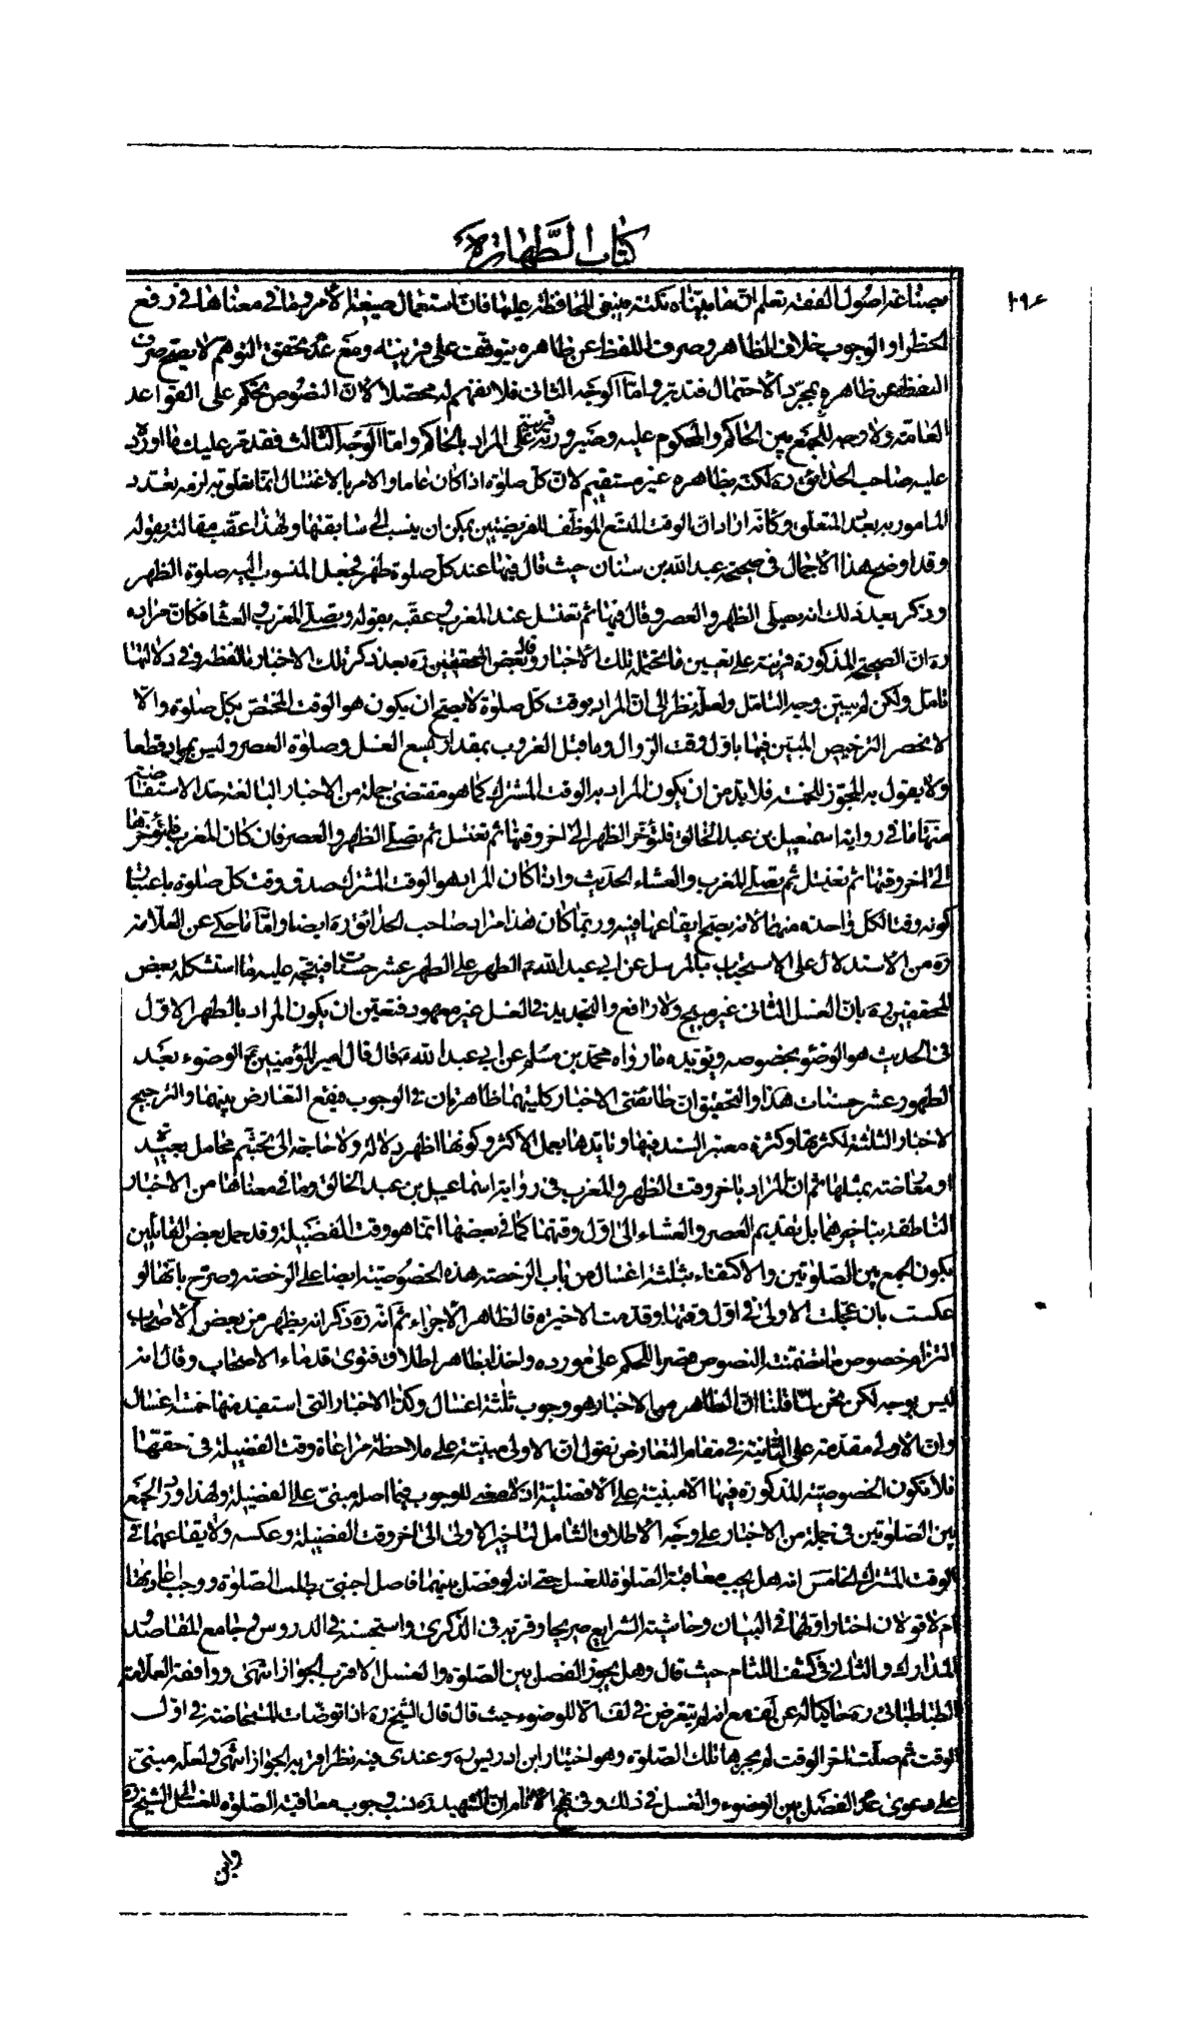 كتاب الطهارة
۱۹۶
بصناعة اصول الفقه تعلم ان ما بيّناه نكتة ينبغي المحافظة عليها فان استعمال صيغة الأمر وما في معناها في رفع
الحظر او الوجوب خلاف الظاهر وصرف اللفظ عن ظاهره يتوقف على قرينة ومع عدم تحقق التوهم لا يصحّ صرف
اللفظ عن ظاهره بمجرّد الاحتمال فتدبر وامّا الوجه الثانى فلا نفهم له محصّلا لانّ النصوص تحكم على القواعد
العامة ولا وجه للجمع بين الحاكم والمحكوم عليه وصيرورته قرينة على المراد بالحاكم وامّا الوجه الثالث فقد تعرف عليك ما اورده
عليه صاحب الحدائق ره لكنه بظاهره غير مستقيم لان كل صلوة اذا كان عاما والامر بالاغتسال انما تعلق به لزمه تعدد
المامور به بعدد المتعلق وكانه اراد ان الوقت المتسع الموظف للفريضتين يمكن ان ينسب الى سابقتهما ولهذا عقب مقالته بقوله
وقد اوضح هذا الاجمال في صحيحة عبد الله بن سنان حيث قال فيها عند كل صلوة ظهر فجعل المنسوب اليه صلوة الظهر
وذكر بعد ذلك انه يصلى الظهر والعصر وقال فيها ثم تغتسل عند المغرب وعقبه بقوله وتصلي المغرب والعشاء فكان مراده
ره ان الصحيحة المذكورة قرينة على تعيين ما تحتمله تلك الأخبار وقال بعض المحققين ره بعد ذكر تلك الاخبار ما لفظه وفي دلالتها
تامل ولكن لم يبين وجه التامل ولعله نظر الى ان المراد بوقت كل صلوة لا يصح ان يكون هو الوقت المختص بكل صلوة والّا
لانحصر الترخيص المبين فيها باوّل وقت الزوال وما قبل الغروب بمقدار يسع الغسل وصلوة العصر وليس بمراد قطعا
ولا يقول به المجوز للخمسة فلا بد من ان يكون المراد به الوقت المشترك كما هو مقتضى جملة من الاخبار البالغة حد الاستفاضة
منها ما في رواية اسمعيل بن عبد الخالق فلتؤخّر الظهر الى اخر وقتها ثم تغتسل ثم تصلي الظهر والعصر فان كان المغرب فلتؤخرها
الى اخر وقتها ثم تغتسل ثم تصلي المغرب والعشاء الحديث واذا كان المراد هو الوقت المشترك صدق وقت كل صلوة باعتبار
كونه وقتا لكل واحدة منهما لانه يصح ايقاعها فيه وربما كان هذا مراد صاحب الحدائق ره ايضا وامّا ما حكى عن العلامة
ره من الاستدلال على الاستحباب بالمرسل عن ابي عبد الله ع الطهر على الطهر عشر حسنات فيتجه عليه ما استشكله بعض
المحققين ره بان الغسل الثانى غير مبيح ولا رافع والتجديد في الغسل غير معهود فتعين ان يكون المراد بالطهر الاول
في الحديث هو الوضوء بخصوصه ويؤيده ما رواه محمد بن مسلم عن ابي عبد الله ع قال قال امير المؤمنين ع الوضوء بعد
الطهور عشر حسنات هذا والتحقيق ان طائفتى الاخبار كليتهما ظاهرتان في الوجوب فيقع التعارض بينهما والترجيح
لاخبار الثلثة لكثرتها وكثرة معتبر السند فيها وتايدها بعمل الاكثر وكونها اظهر دلالة ولا حاجة الى تجشّم محامل بعيدة
او معارضة بمثلها ثم ان المراد باخر وقت الظهر والمغرب في رواية اسماعيل بن عبد الخالق وما في معناها من الاخبار
الناطقة بتاخيرهما بل تقديم العصر والعشاء الى اول وقتهما كما في بعضها انما هو وقت الفضيلة وقد حمل بعض القائلين
بكون الجمع بين الصلوتين والاكتفاء بثلثة اغسال من باب الرخصة هذه الخصوصية ايضا على الرخصة وصرح بانها لو
عكست بان عجلت الاولى في اول وقتها وقدمت الاخيرة فالظاهر الاجزاء ثم انه ره ذكر انه يظهر من بعض الاصحاب
التزام خصوص ما تضمنته النصوص قصرا للحكم على مورده واخذا بظاهر اطلاق فتوى قدماء الاصحاب وقال انه
ليس بوجه لكن نحن لما قلنا ان الظاهر من الاخبار هو وجوب ثلثة اغسال وكذا الاخبار التي استفيد منها خمسة اغسال
وان الاولى مقدمة على الثانية في مقام التعارض نقول ان الاولى مبنية على ملاحظة مراعاة وقت الفضيلة في حقها
فلا تكون الخصوصية المذكورة فيها الا مبنية على الافضلية اذ لا معنى للوجوب فيما اصله مبني على الفضيلة ولهذا ورد الجمع
بين الصلوتين في جملة من الاخبار على وجه الاطلاق الشامل لتاخير الاولى الى اخر وقت الفضيلة وعكسه ولايقاعهما في
الوقت المشترك الخامس انه هل يجب معاقبة الصلوة للغسل حتى انه لو فصل بينهما فاصل اجنبى بطلت الصلوة ووجب اعادتها
ام لا قولان اختار اولهما في البيان وحاشية الشرايع صريحا وقربه في الذكرى واستحسنه في الدروس وجامع المقاصد
المدارك والثانى في كشف اللثام حيث قال وهل يجوز الفصل بين الصلوة والغسل الاقرب الجواز انتهى ووافقه العلامة
الطباطبائى ره حاكيا له عن لف مع انه لم يتعرض في لف الا للوضوء حيث قال قال الشيخ ره اذا توضات المستحاضة في اول
الوقت ثم صلت اخر الوقت لم يجزها تلك الصلوة وهو اختيار ابن ادريس ره وعندى فيه نظر اقربه الجواز انتهى ولعله مبنى
على دعوى عدم الفصل بين الوضوء والغسل في ذلك وفي فتح الانام ان الشهيد ره نسب وجوب معاقبة الصلوة للغسل الى الشيخ ره